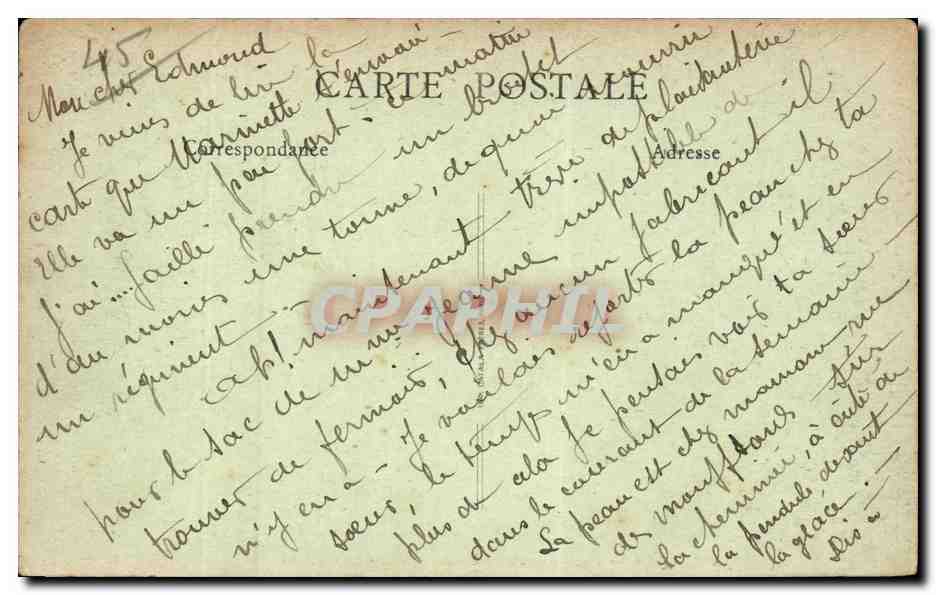 45
CARTE POSTALE
Correspondance
Adresse
Mon cher Edmond
Je viens de lire la
carte que Marinette t'envoie
Elle va un peu fort : ce matin
j'ai .... failli prendre un billet
d'au moins une tonne, de quoi nourrir
un régiment
Ah! maintenant très de plaisanterie
pour le sac de Mme Jeanne impossible de
trouver de fermoir, chez aucun fabricant il
n'y en a - Je voulais reporter la peau chez ta
sœur, le temps m'en a manqué et en
plus de cela je pensais voir ta sœur
dans le courant de la semaine
La peau est chez maman rue
de mouffetard sur
la cheminée, à côté de
la pendule devant
la glace.
Dis à
CPAPHIL